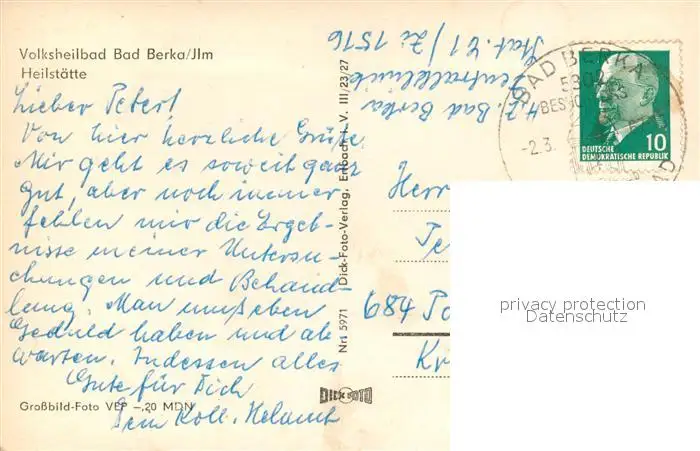 Volksheilbad Bad Berka/Jlm
Heilstätte
Lieber Peter!
Von hier herzliche Grüße.
Mir geht es soweit ganz
gut, aber noch immer
fehlen mir die Ergeb-
nisse meiner Untersu-
chungen und Behand-
lung. Man muß eben
Geduld haben und ab
warten. Indessen alles
Gute für Dich
Dein Koll. Helmut
Großbild-Foto VEP -,20 MDN
Nr. 5971 Dick-Foto-Verlag, Erlbach i. V. III/23/27
DICK FOTO
Z. Bad Berka
Zentralklinik
Stat. Z1/Zi 1516
BAD BERKA
5302
-2.3.
10
DEUTSCHE
DEMOKRATISCHE REPUBLIK
Herr
684 Pö
Kr
privacy protection
Datenschutz